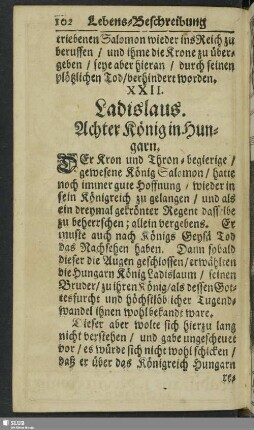 102 Lebens-Beschreibung
triebenen Salomon wieder ins Reich zu
beruffen / und ihme die Krone zu über-
geben / seye aber hieran / durch seinen
plötzlichen Tod / verhindert worden.
XXII.
Ladislaus.
Achter König in Hun-
garn.
DEr Kron und Thron-begierige /
gewesene König Salomon / hatte
noch immer gute Hoffnung / wieder in
sein Königreich zu gelangen / und als
ein dreymal gekrönter Regent dasselbe
zu beherrschen; allein vergebens. Er
muste auch nach Königs Geysä Tod
das Nachsehen haben. Dann sobald
dieser die Augen geschlossen / erwählten
die Hungarn König Ladislaum / seinen
Bruder / zu ihren König / als dessen Got-
tesfurcht und höchstlöblicher Tugend-
wandel ihnen wohl bekandt ware.
Dieser aber wolte sich hierzu lang
nicht verstehen / und gabe ungescheuet
vor / es würde sich nicht wohl schicken /
daß er über das Königreich Hungarn
SLUB